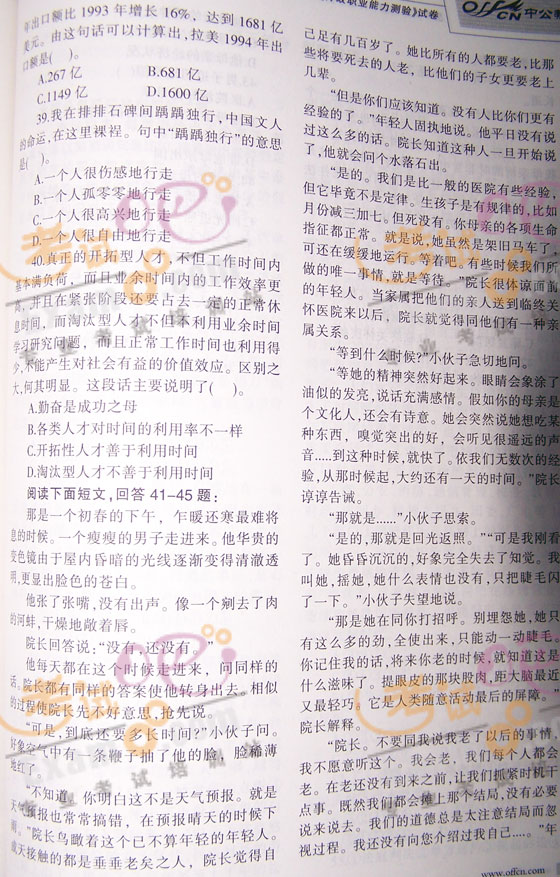 年出口额比 1993 年增长 16%，达到 1681 亿
美元。由这句话可以计算出，拉美 1994 年出
口额是(　)。
A.267 亿　B.681 亿
C.1149 亿　D.1600 亿
39.我在排排石碑间踽踽独行，中国文人
的命运，在这里裸裎。句中“踽踽独行”的意思
是(　)。
A.一个人很伤感地行走
B.一个人孤零零地行走
C.一个人很高兴地行走
D.一个人很自由地行走
40.真正的开拓型人才，不但工作时间内
基本满负荷，而且业余时间内的工作效率更
高，并且在紧张阶段还要占去一定的正常休
息时间，而淘汰型人才不但不利用业余时间
学习研究问题，而且正常工作时间也利用得
少，不能产生对社会有益的价值效应。区别之
大，何其明显。这段话主要说明了(　)。
A.勤奋是成功之母
B.各类人才对时间的利用率不一样
C.开拓性人才善于利用时间
D.淘汰型人才不善于利用时间
阅读下面短文，回答 41—45 题：
那是一个初春的下午，乍暖还寒最难将
息的时候。一个瘦瘦的男子走进来。他华贵的
变色镜由于屋内昏暗的光线逐渐变得清澈透
明，更显出脸色的苍白。
他张了张嘴，没有出声。像一个剜去了肉
的河蚌，干燥地敞着唇。
院长回答说：“没有，还没有。”
他每天都在这个时候走进来，问同样的
话。院长都有同样的答案使他转身出去。相似
的过程使院长先不好意思，抢先说。
“可是，到底还要多长时间？”小伙子问。
好象空气中有一条鞭子抽了他的脸，脸稀薄
地红了。
“不知道。你明白这不是天气预报。就是
天气预报也常常搞错，在预报晴天的时候下
雨。”院长鸟瞰着这个已不算年轻的年轻人。
成天接触的都是垂垂老矣之人，院长觉得自
职业能力测验》试卷
OffCN 中公
己足有几百岁了。她比所有的人都要老，比那
些将要死去的人老，比他们的子女更要老上
几辈。
“但是你们应该知道。没有人比你们更有
经验的了。”年轻人固执地说。他平日没有说
过这么多的话。院长知道这种人一旦开始说
了，他就会问个水落石出。
“是的。我们是比一般的医院有些经验，
但它毕竟不是定律。生孩子是有规律的，比如
月份减三加七。但死没有。你母亲的各项生命
指征都正常。就是说，她虽然是架旧马车了，
可还在缓缓地运行。等着吧。有些时候我们所
做的唯一事情，就是等待。”院长很体谅面前
的年轻人。当家属把他们的亲人送到临终关
怀医院来以后，院长就觉得同他们有一种亲
属关系。
“等到什么时候？”小伙子急切地问。
“等她的精神突然好起来。眼睛会象涂了
油似的发亮，说话充满感情。假如你的母亲是
个文化人，还会有诗意。她会突然说她想吃某
种东西，嗅觉突出的好，会听见很遥远的声
音……到这种时候，就快了。依我们无数次的经
验，从那时候起，大约还有一天的时间。”院长
谆谆告诫。
“那就是……”小伙子思索。
“是的，那就是回光返照。”“可是我刚看
了。她昏昏沉沉的，好象完全失去了知觉。我
叫她，摇她，她什么表情也没有，只把睫毛闪
了一下。”小伙子失望地说。
“那是她在同你打招呼。别埋怨她，她只
有这么多的劲，全使出来，只能动一动睫毛。
你记住我的话，将来你老的时候，就知道这是
什么滋味了。提眼皮的那块肌肉，距大脑最近
又最轻巧。它是人类随意活动最后的屏障。”
院长解释。
“院长。不要同我说我老了以后的事情，
我不愿意听这个。我会老，我们每个人都会
老。在老还没有到来之前，让我们抓紧时机干
点事。既然我们都会摊上那个结局，没有必要
说来说去。我们的道德总是太注意结局而忽
视过程。我还没有向您介绍过我自己……。”年
www.offcn.com